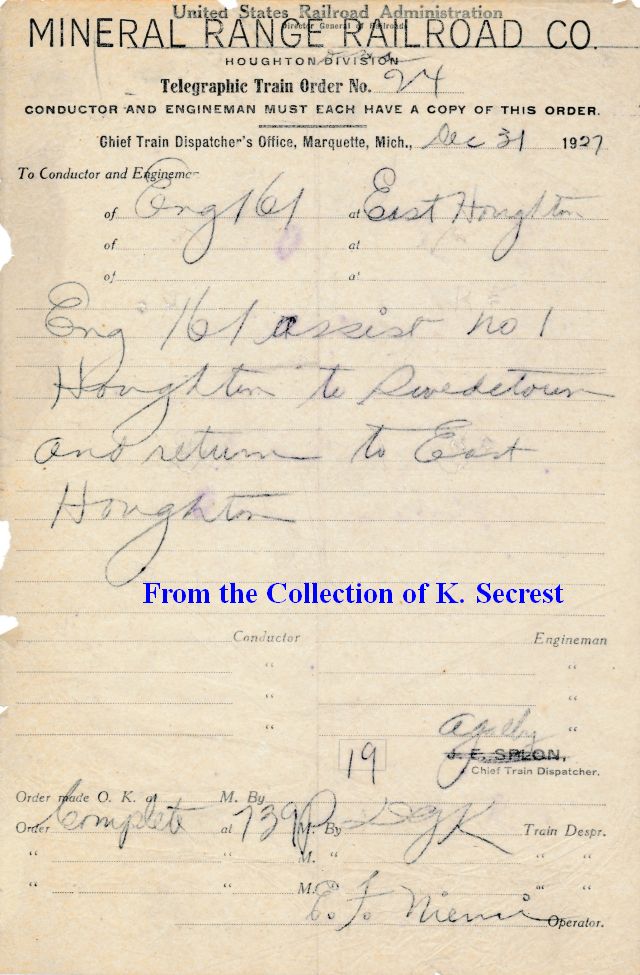 United States Railroad Administration
Director General of Railroads
MINERAL RANGE RAILROAD CO.
HOUGHTON DIVISION
Telegraphic Train Order No. 24
CONDUCTOR AND ENGINEMAN MUST EACH HAVE A COPY OF THIS ORDER.
Chief Train Dispatcher's Office, Marquette, Mich., Dec 31 1927
To Conductor and Enginemen
of Eng 161 at East Houghton
of at
of at
Eng 161 assist no 1
Houghton to Swedetown
and return to East
Houghton
From the Collection of K. Secrest
Conductor Engineman
" "
" "
" "
19
J. E. SPLON,
Chief Train Dispatcher.
Order made O. K. at M. By
Order Complete at 739P M. By DGK Train Despr.
" " M. " " "
" " M. " "
E. F. Niemi Operator.